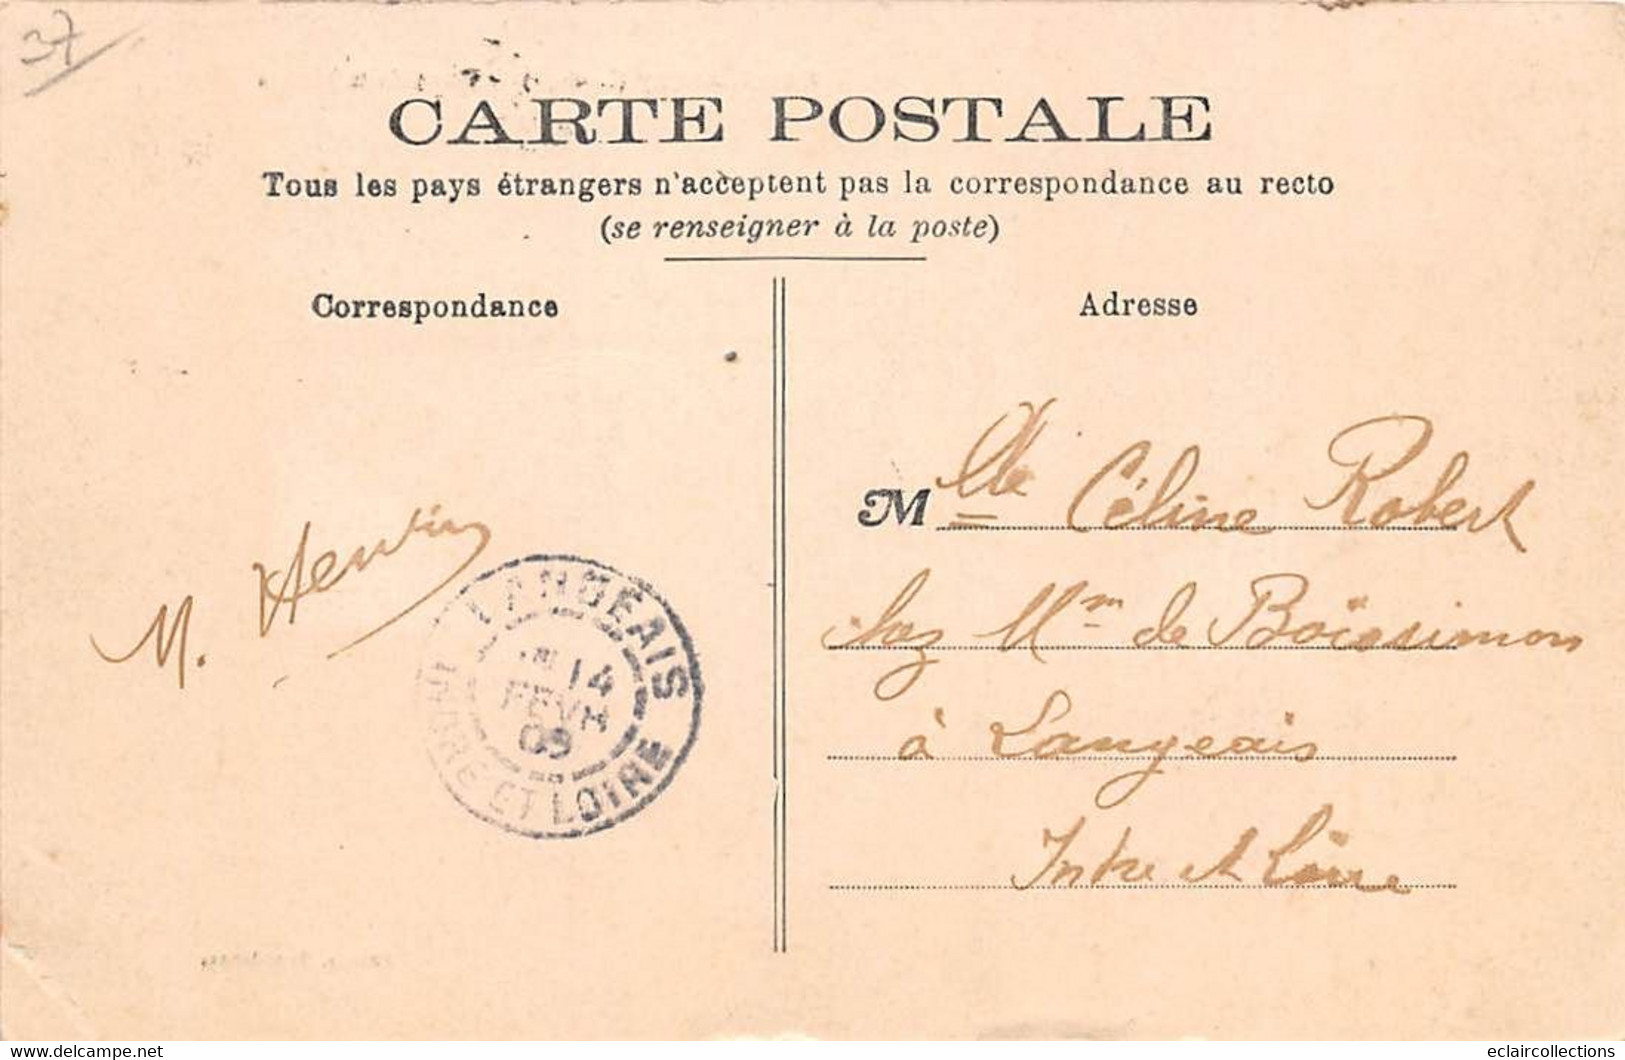 37
CARTE POSTALE
Tous les pays étrangers n'acceptent pas la correspondance au recto
(se renseigner à la poste)
Correspondance
Adresse
Mlle Céline Robert
chez Mm de Boissimon
à Langeais
Indre et Loire
M.
LANGEAIS
14
FEVR
09
INDRE ET LOIRE
www.delcampe.net
eclaircollections